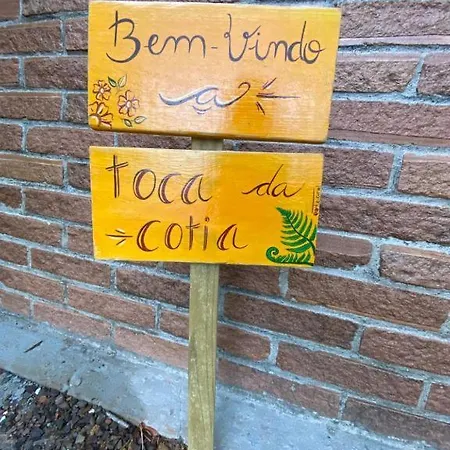 Bem-Vindo
a
Toca da
Cotia